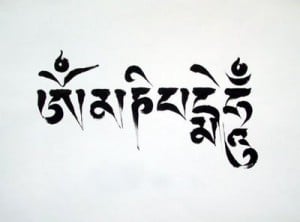 ཨོཾ་མ་ཎི་པདྨེ་ཧཱུྃ